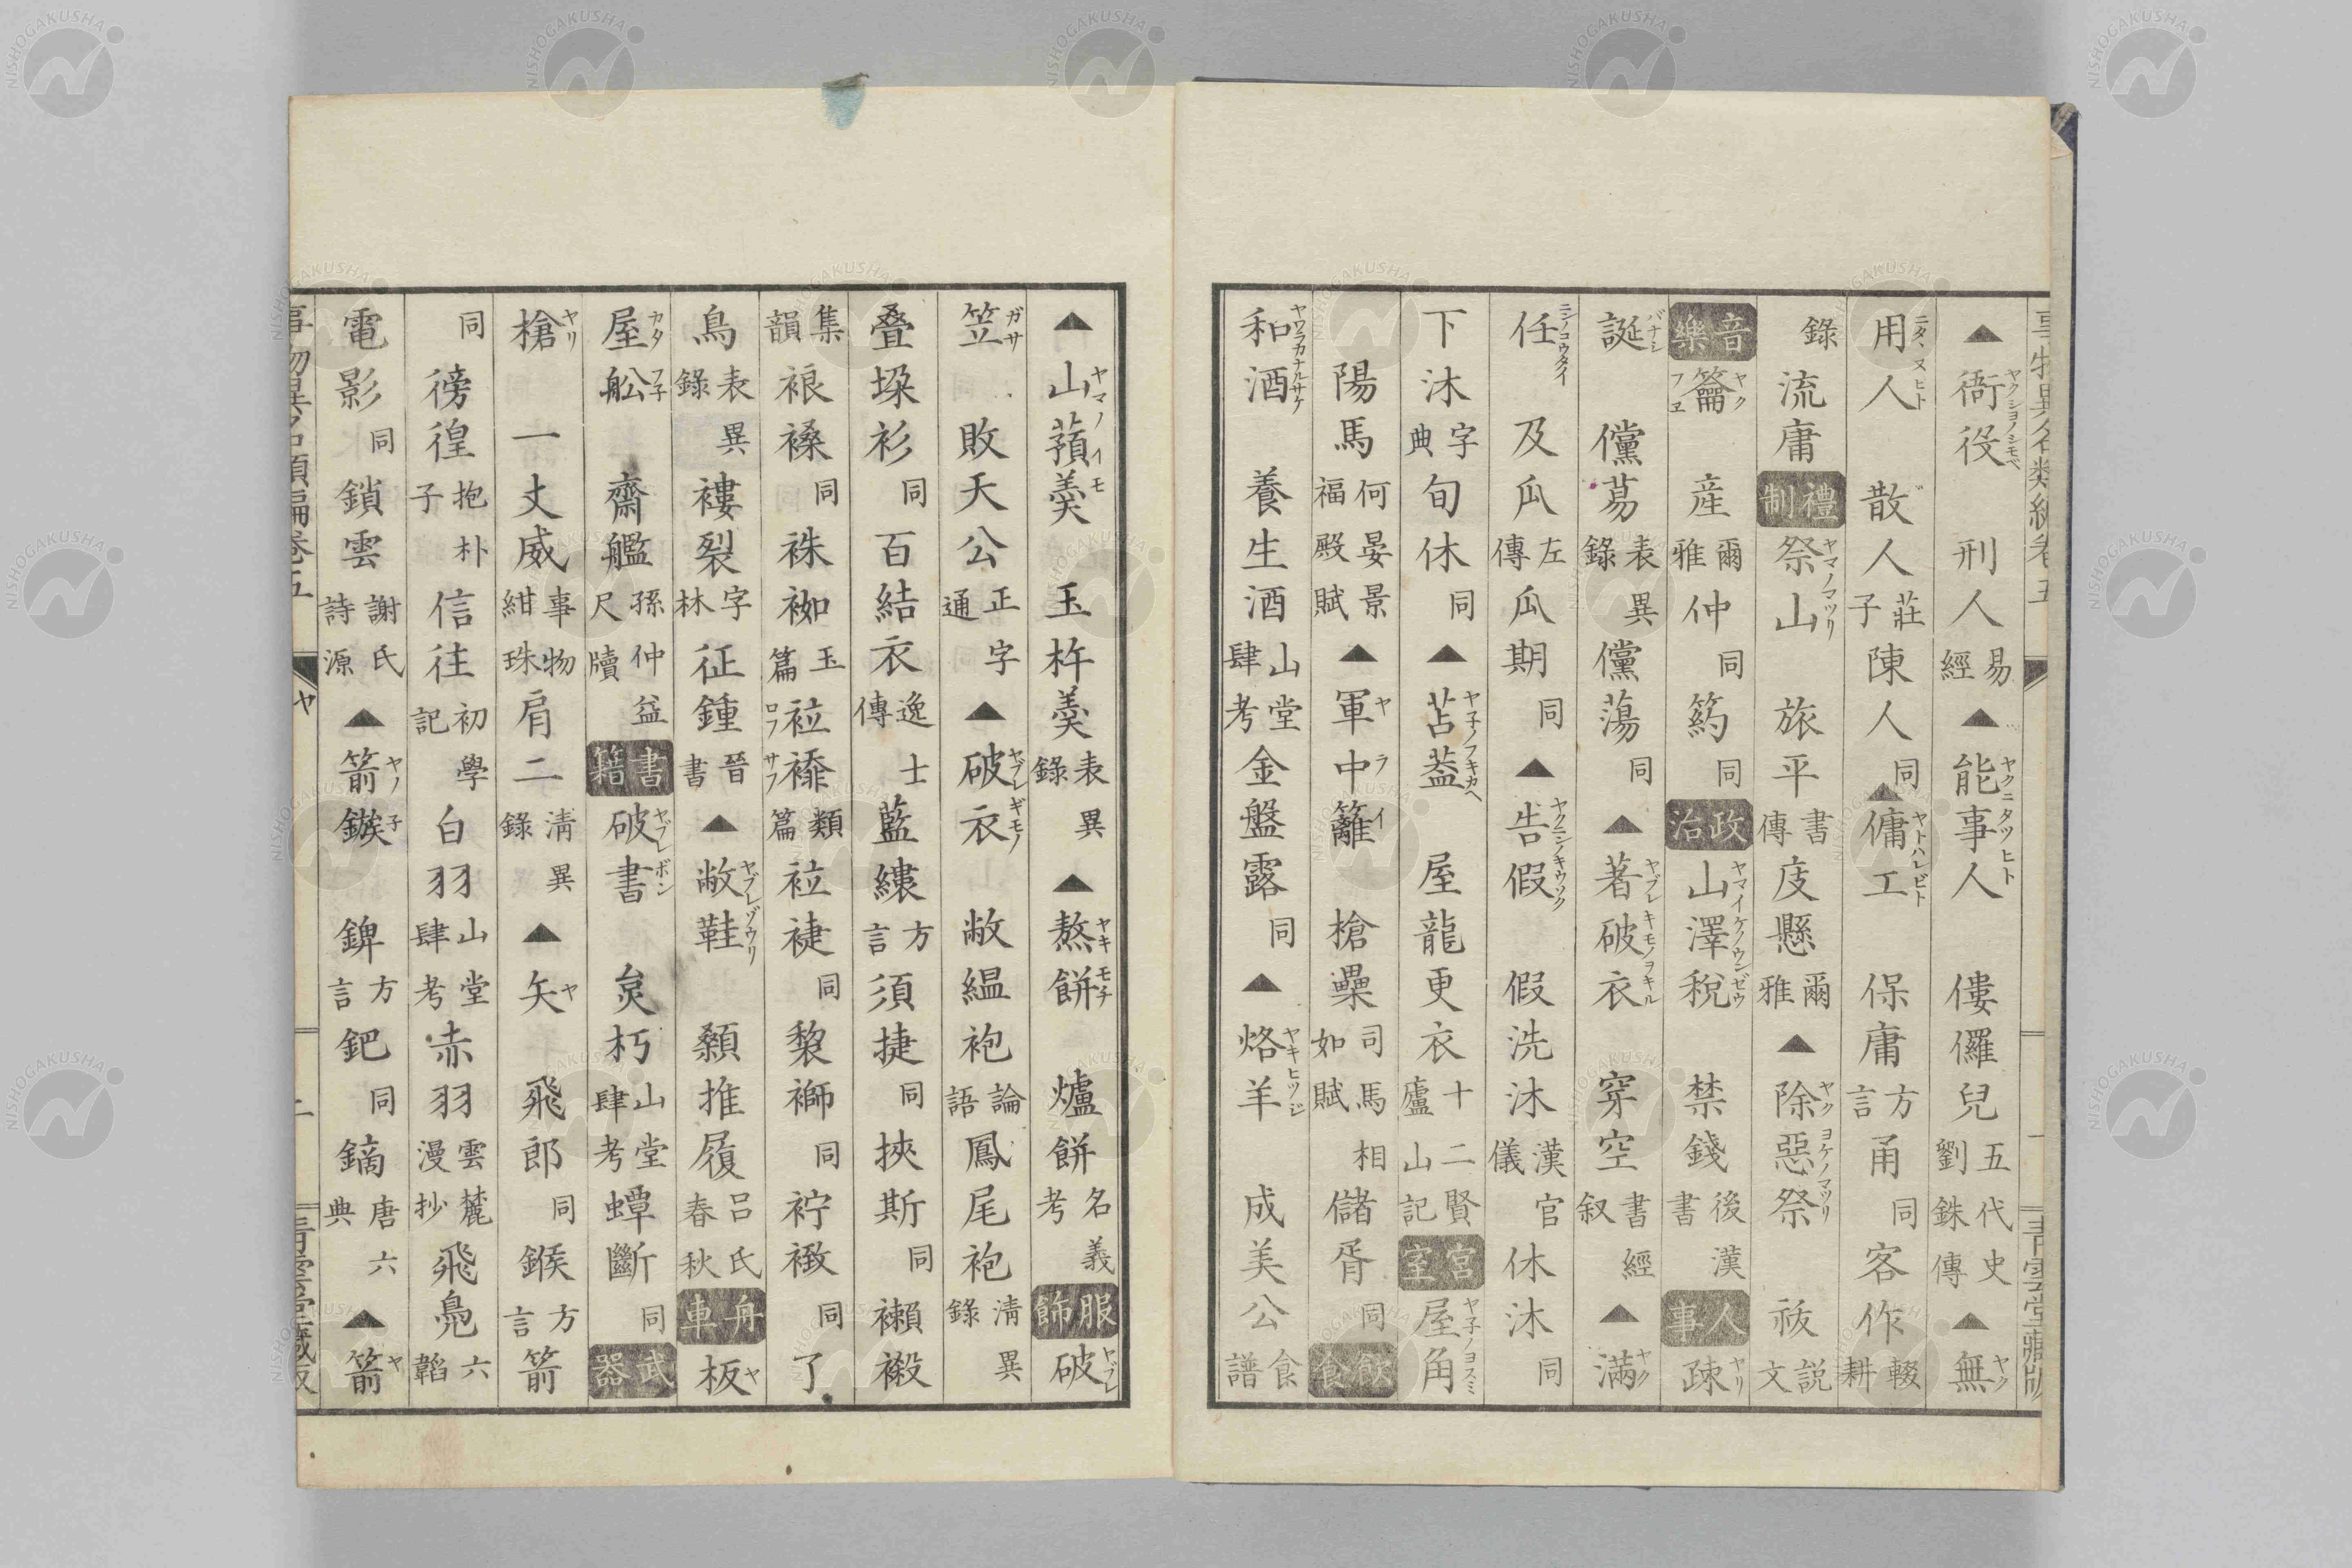 事物異名類編卷五
▲衙役 ヤクショノシモベ 刑人 易經 ▲能事人 ヤクニタツヒト 僂儸兒 五代史劉銖傳 ▲無 ヤク
用人 ニタヽヌヒト 散人 莊子 陳人 同 ▲傭工 ヤトハレビト 保庸 方言 甬 同 客作 輟耕
錄 流庸 禮制 祭山 ヤマノマツリ 旅平 書傳 庋懸 爾雅 ▲除惡祭 ヤクヨケノマツリ 祓 説文
音樂 籥 ヤクフヱ 産 爾雅 仲 同 箹 同 政治 山澤稅 ヤマイケノウンゼウ 禁錢 後漢書 人事 疎 ヤリ
誕 バナシ 儻蕩 表異錄 儻蕩 同 ▲著破衣 ヤブレキモノヲキル 穿空 書經叙 ▲滿 ヤク
任 ニンノコウタイ 及瓜 左傳 瓜期 同 ▲告假 ヤクニンノキウソク 假洗沐 漢官儀 休沐 同
下沐 字典 旬休 同 ▲苫葢 ヤ子ノフキカヘ 屋龍更衣 十二賢廬山記 宮室 屋角 ヤ子ノヨスミ
陽馬 何晏景福殿賦 ▲軍中籬 ヤライ 槍櫐 司馬相如賦 儲胥 同 飲食
和酒 ヤワラカナルサケ 養生酒 山堂肆考 金盤露 同 ▲烙羊 ヤキヒツジ 成美公 食譜
▲山蕷羹 ヤマノイモ 玉杵羹 表異錄 ▲熬餅 ヤキモチ 爐餅 名義考 服飾 破 ヤブレ
笠 ガサ 敗天公 正字通 ▲破衣 ヤブレギモノ 敝縕袍 論語 鳳尾袍 淸異錄
叠垜衫 同 百結衣 逸士傳 藍縷 方言 須捷 同 挾斯 同 襰䙛
集韻 䘞褬 同 袾袽 玉篇 䘠䙰 ロフサフ 類篇 䘠褄 同 㡞䙾 同 䘢緻 同 了
鳥 表異錄 褸裂 字林 征鍾 晉書 ▲敝鞋 ヤブレゾウリ 顡推履 呂氏春秋 舟車 板 ヤ
屋舩 カタフ子 齋艦 孫仲益尺牘 書籍 破書 ヤブレボン 炱朽 山堂肆考 蟫斷 同 武器
槍 ヤリ 一丈威 事物紺珠 肩二 淸異錄 ▲矢 ヤ 飛郎 同 鍭 方言 箭
同 徬徨 抱朴子 信往 初學記 白羽 山堂肆考 赤羽 雲麓漫抄 飛鳧 六韜
電影 同 鎖雲 謝氏詩源 ▲箭鏃 ヤノ子 錍 方言 鈀 同 鏑 唐六典 ▲箭 ヤ
事物異名類編卷五 ヤ 二 青雲堂藏版